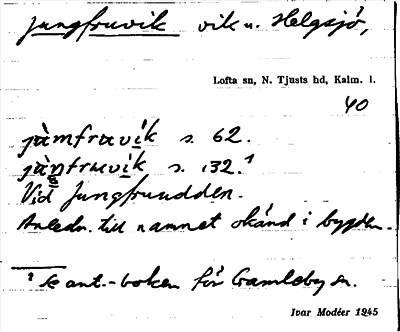 Jungfruvik vik u. Helgsjö,
Lofta sn, N. Tjusts hd, Kalm. l.
40
jàmfravík s. 62.
jàŋfruvík s. 132.¹
Vid Jungfruudden.
Anledn. till namnet okänd i bygden.
¹ Kant.-boken för Gamleby sn.
Ivar Modéer 1945